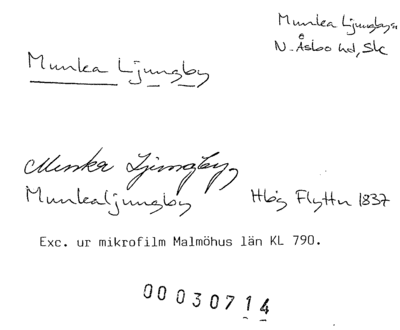 Munka Ljungby
N. Åsbo hd, Sk
Munka Ljungby
Munka Ljungby,
Munkaljungby
Hbg Flyttn 1837
Exc. ur mikrofilm Malmöhus län KL 790.
00030714